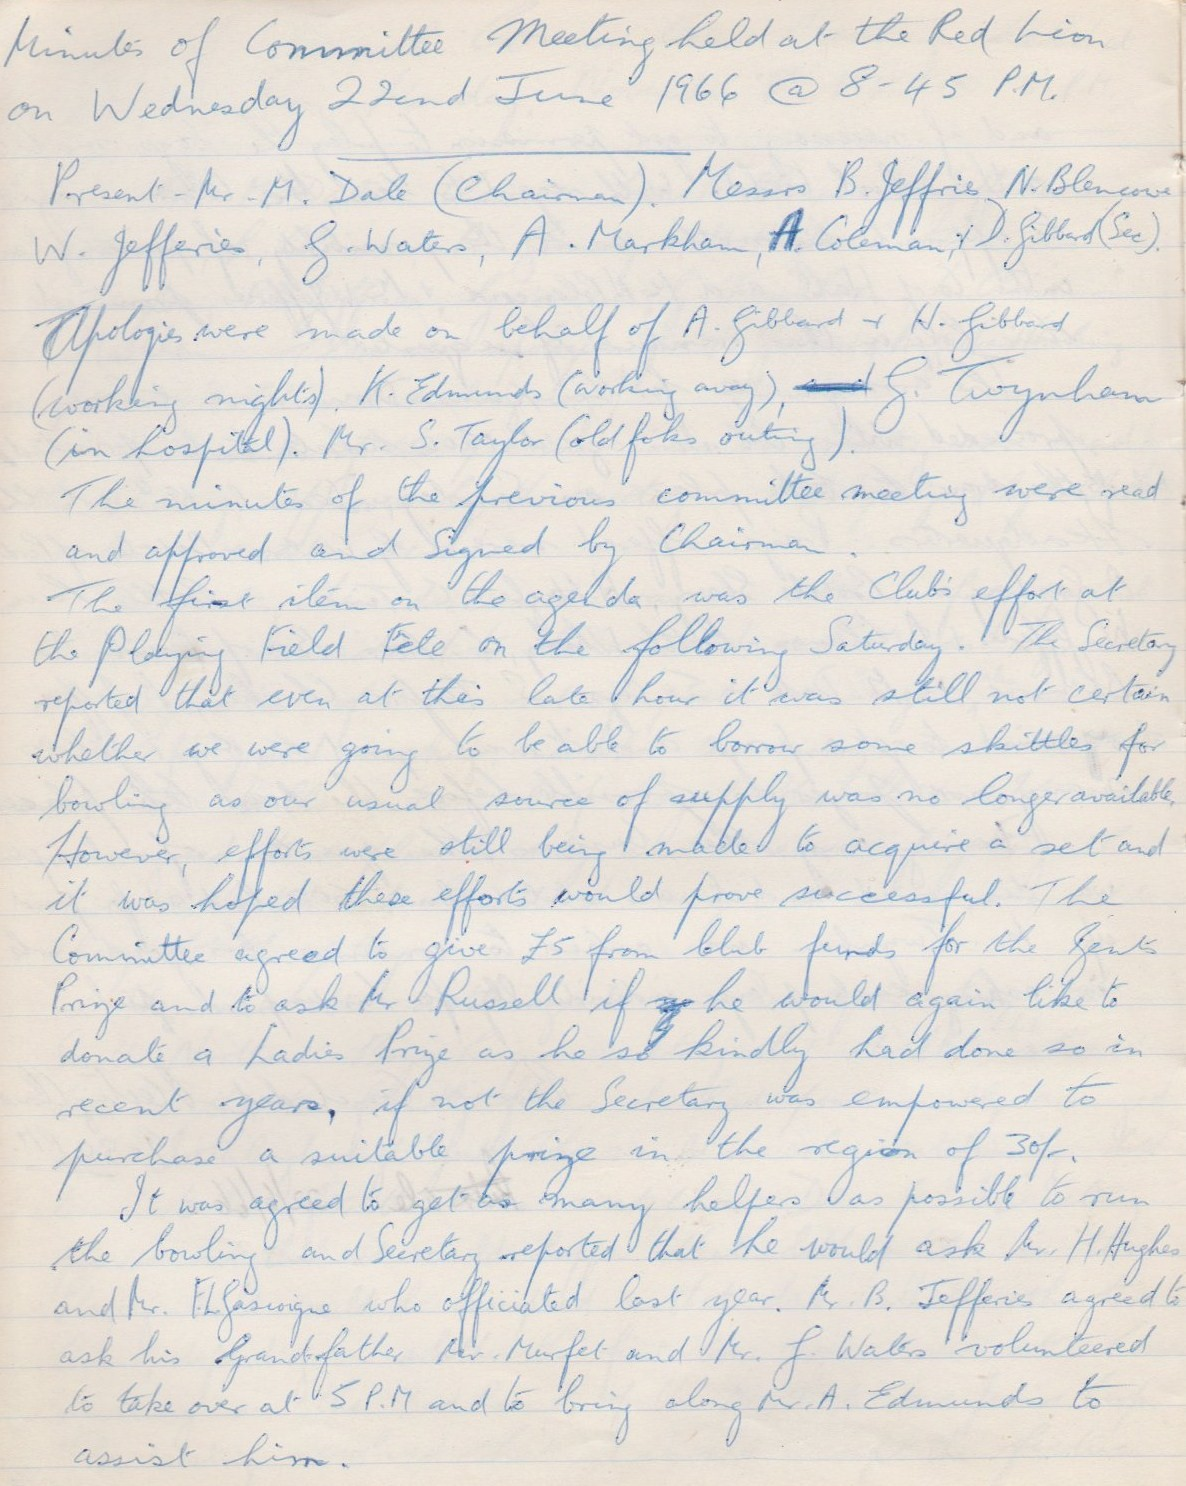 Minutes of Committee Meeting held at the Red Lion
on Wednesday 22nd June 1966 @ 8-45 P.M.
Present - Mr. M. Dale (Chairman). Messrs B. Jeffries N. Blencowe
W. Jefferies, G. Waters, A. Markham, A. Coleman, & D. Gibbard (Sec).
Apologies were made on behalf of A. Gibbard & H. Gibbard
(working nights), K. Edmunds (working away), G. Twynham
(in hospital). Mr. S. Taylor (old foks outing).
The minutes of the previous committee meeting were read
and approved and signed by Chairman.
The first item on the agenda was the Club's effort at
the Playing Field Fete on the following Saturday. The Secretary
reported that even at this late hour it was still not certain
whether we were going to be able to borrow some skittles for
bowling as our usual source of supply was no longer available.
However, efforts were still being made to acquire a set and
it was hoped these efforts would prove successful. The
Committee agreed to give £5 from Club funds for the Gents
Prize and to ask Mr Russell if he would again like to
donate a Ladies Prize as he so kindly had done so in
recent years, if not the Secretary was empowered to
purchase a suitable prize in the region of 30/-.
It was agreed to get as many helpers as possible to run
the bowling and Secretary reported that he would ask Mr. H. Hughes
and Mr. F.L. Gascoigne who officiated last year. Mr. B. Jefferies agreed to
ask his Grandfather Mr. Murfet and Mr. G. Waters volunteered
to take over at 5 P.M and to bring along Mr. A. Edmunds to
assist him.